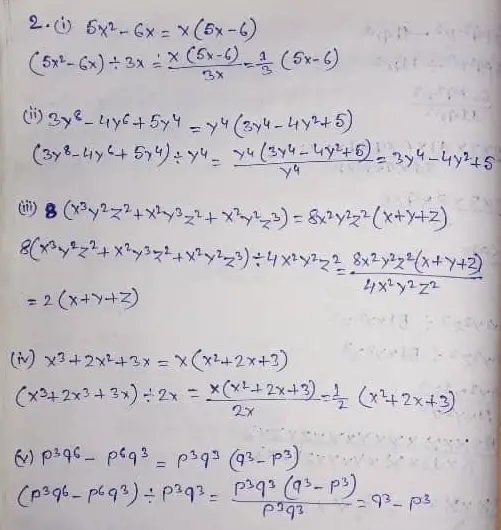 2. (i) 5x² - 6x = x (5x - 6)
(5x² - 6x) ÷ 3x = x (5x - 6) / 3x = 1/3 (5x - 6)
(ii) 3y⁸ - 4y⁶ + 5y⁴ = y⁴ (3y⁴ - 4y² + 5)
(3y⁸ - 4y⁶ + 5y⁴) ÷ y⁴ = y⁴ (3y⁴ - 4y² + 5) / y⁴ = 3y⁴ - 4y² + 5
(iii) 8 (x³y²z² + x²y³z² + x²y²z³) = 8x²y²z² (x + y + z)
8(x³y²z² + x²y³z² + x²y²z³) ÷ 4x²y²z² = 8x²y²z² (x + y + z) / 4x²y²z²
= 2 (x + y + z)
(iv) x³ + 2x² + 3x = x (x² + 2x + 3)
(x³ + 2x³ + 3x) ÷ 2x = x (x² + 2x + 3) / 2x = 1/2 (x² + 2x + 3)
(v) p³q⁶ - p⁶q³ = p³q³ (q³ - p³)
(p³q⁶ - p⁶q³) ÷ p³q³ = p³q³ (q³ - p³) / p³q³ = q³ - p³